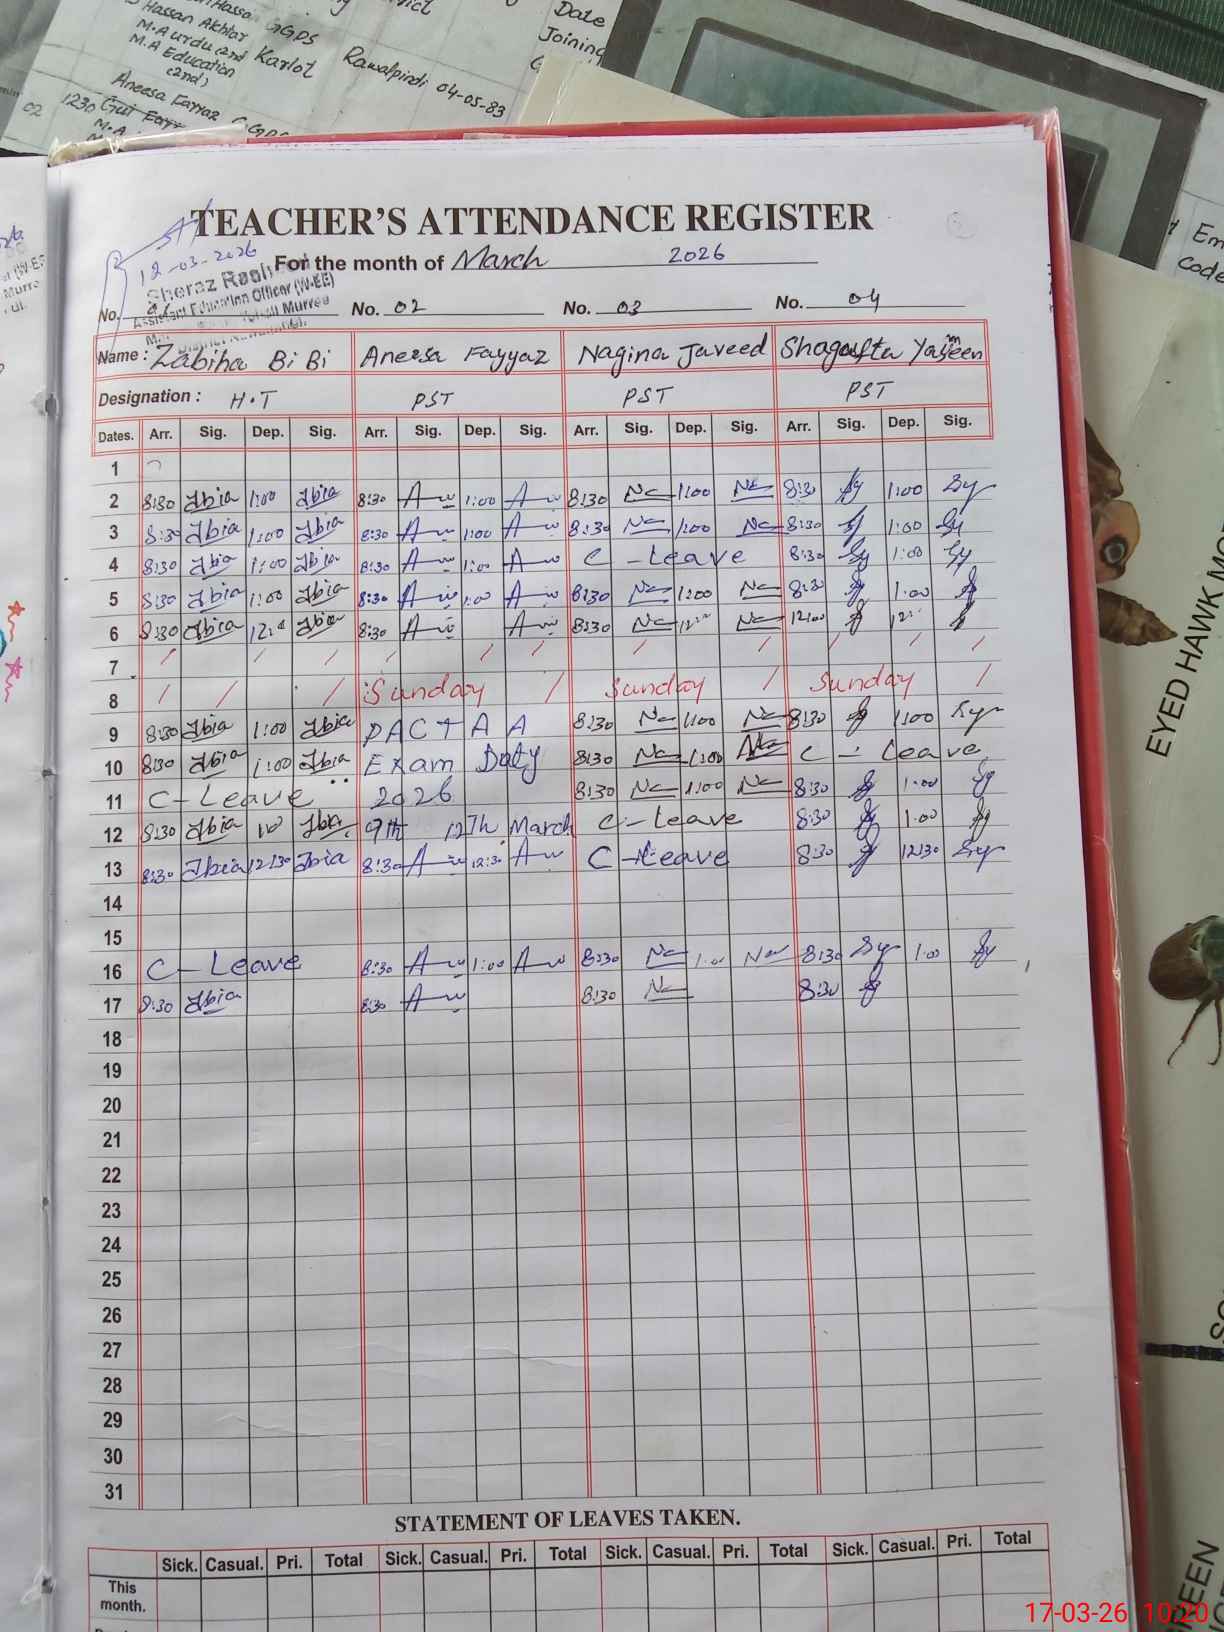 Hassan Akhtar GGPS
M.A urdu (2nd Karlot Rawalpindi 04-05-83
M.A Education
(2nd)
Date
Joining
Aneesa Fayyaz
02 1230
M.A
Em
Code
TEACHER'S ATTENDANCE REGISTER
12-03-2026
For the month of March 2026
Sheraz
Assistant Education Officer (W-EE)
No. No. 02 No. 03 No. 04
Name : Zabiha Bi Bi Aneesa Fayyaz Nagina Javeed Shagufta Yasmeen
Designation : H.T PST PST PST
Dates. Arr. Sig. Dep. Sig. Arr. Sig. Dep. Sig. Arr. Sig. Dep. Sig. Arr. Sig. Dep. Sig.
1
2 8:30 Zbia 1:00 Zbia 8:30 1:00 8:30 1:00 8:30 1:00
3 8:30 Zbia 1:00 Zbia 8:30 1:00 8:30 1:00 8:30 1:00
4 8:30 Zbia 1:00 Zbia 8:30 1:00 C - Leave 8:30 1:00
5 8:30 Zbia 1:00 Zbia 8:30 1:00 8:30 1:00 8:30 1:00
6 8:30 Zbia Zbia 8:30 8:30 12:00
7
8 Sunday Sunday Sunday
9 8:30 Zbia 1:00 Zbia PACTAA 8:30 1:00 8:30 1:00
10 8:30 Zbia 1:00 Zbia Exam Duty 8:30 1:00 C - Leave
11 C - Leave 2026 8:30 1:00 8:30 1:00
12 8:30 Zbia Zbia 9th 12Th March C - Leave 8:30 1:00
13 8:30 Zbia 12:30 Zbia 8:30 12:30 C - Leave 8:30 12:30
14
15
16 C - Leave 8:30 1:00 8:30 1:00 8:30 1:00
17 8:30 Zbia 8:30 8:30 8:30
18
19
20
21
22
23
24
25
26
27
28
29
30
31
STATEMENT OF LEAVES TAKEN.
Sick. Casual. Pri. Total Sick. Casual. Pri. Total Sick. Casual. Pri. Total Sick. Casual. Pri. Total
This
month.
EYED HAWK MO
17-03-26 10:20